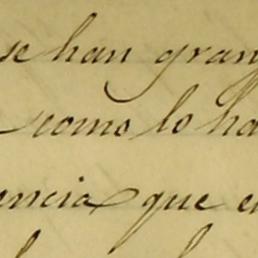 se han gran
como lo ha
encia que e